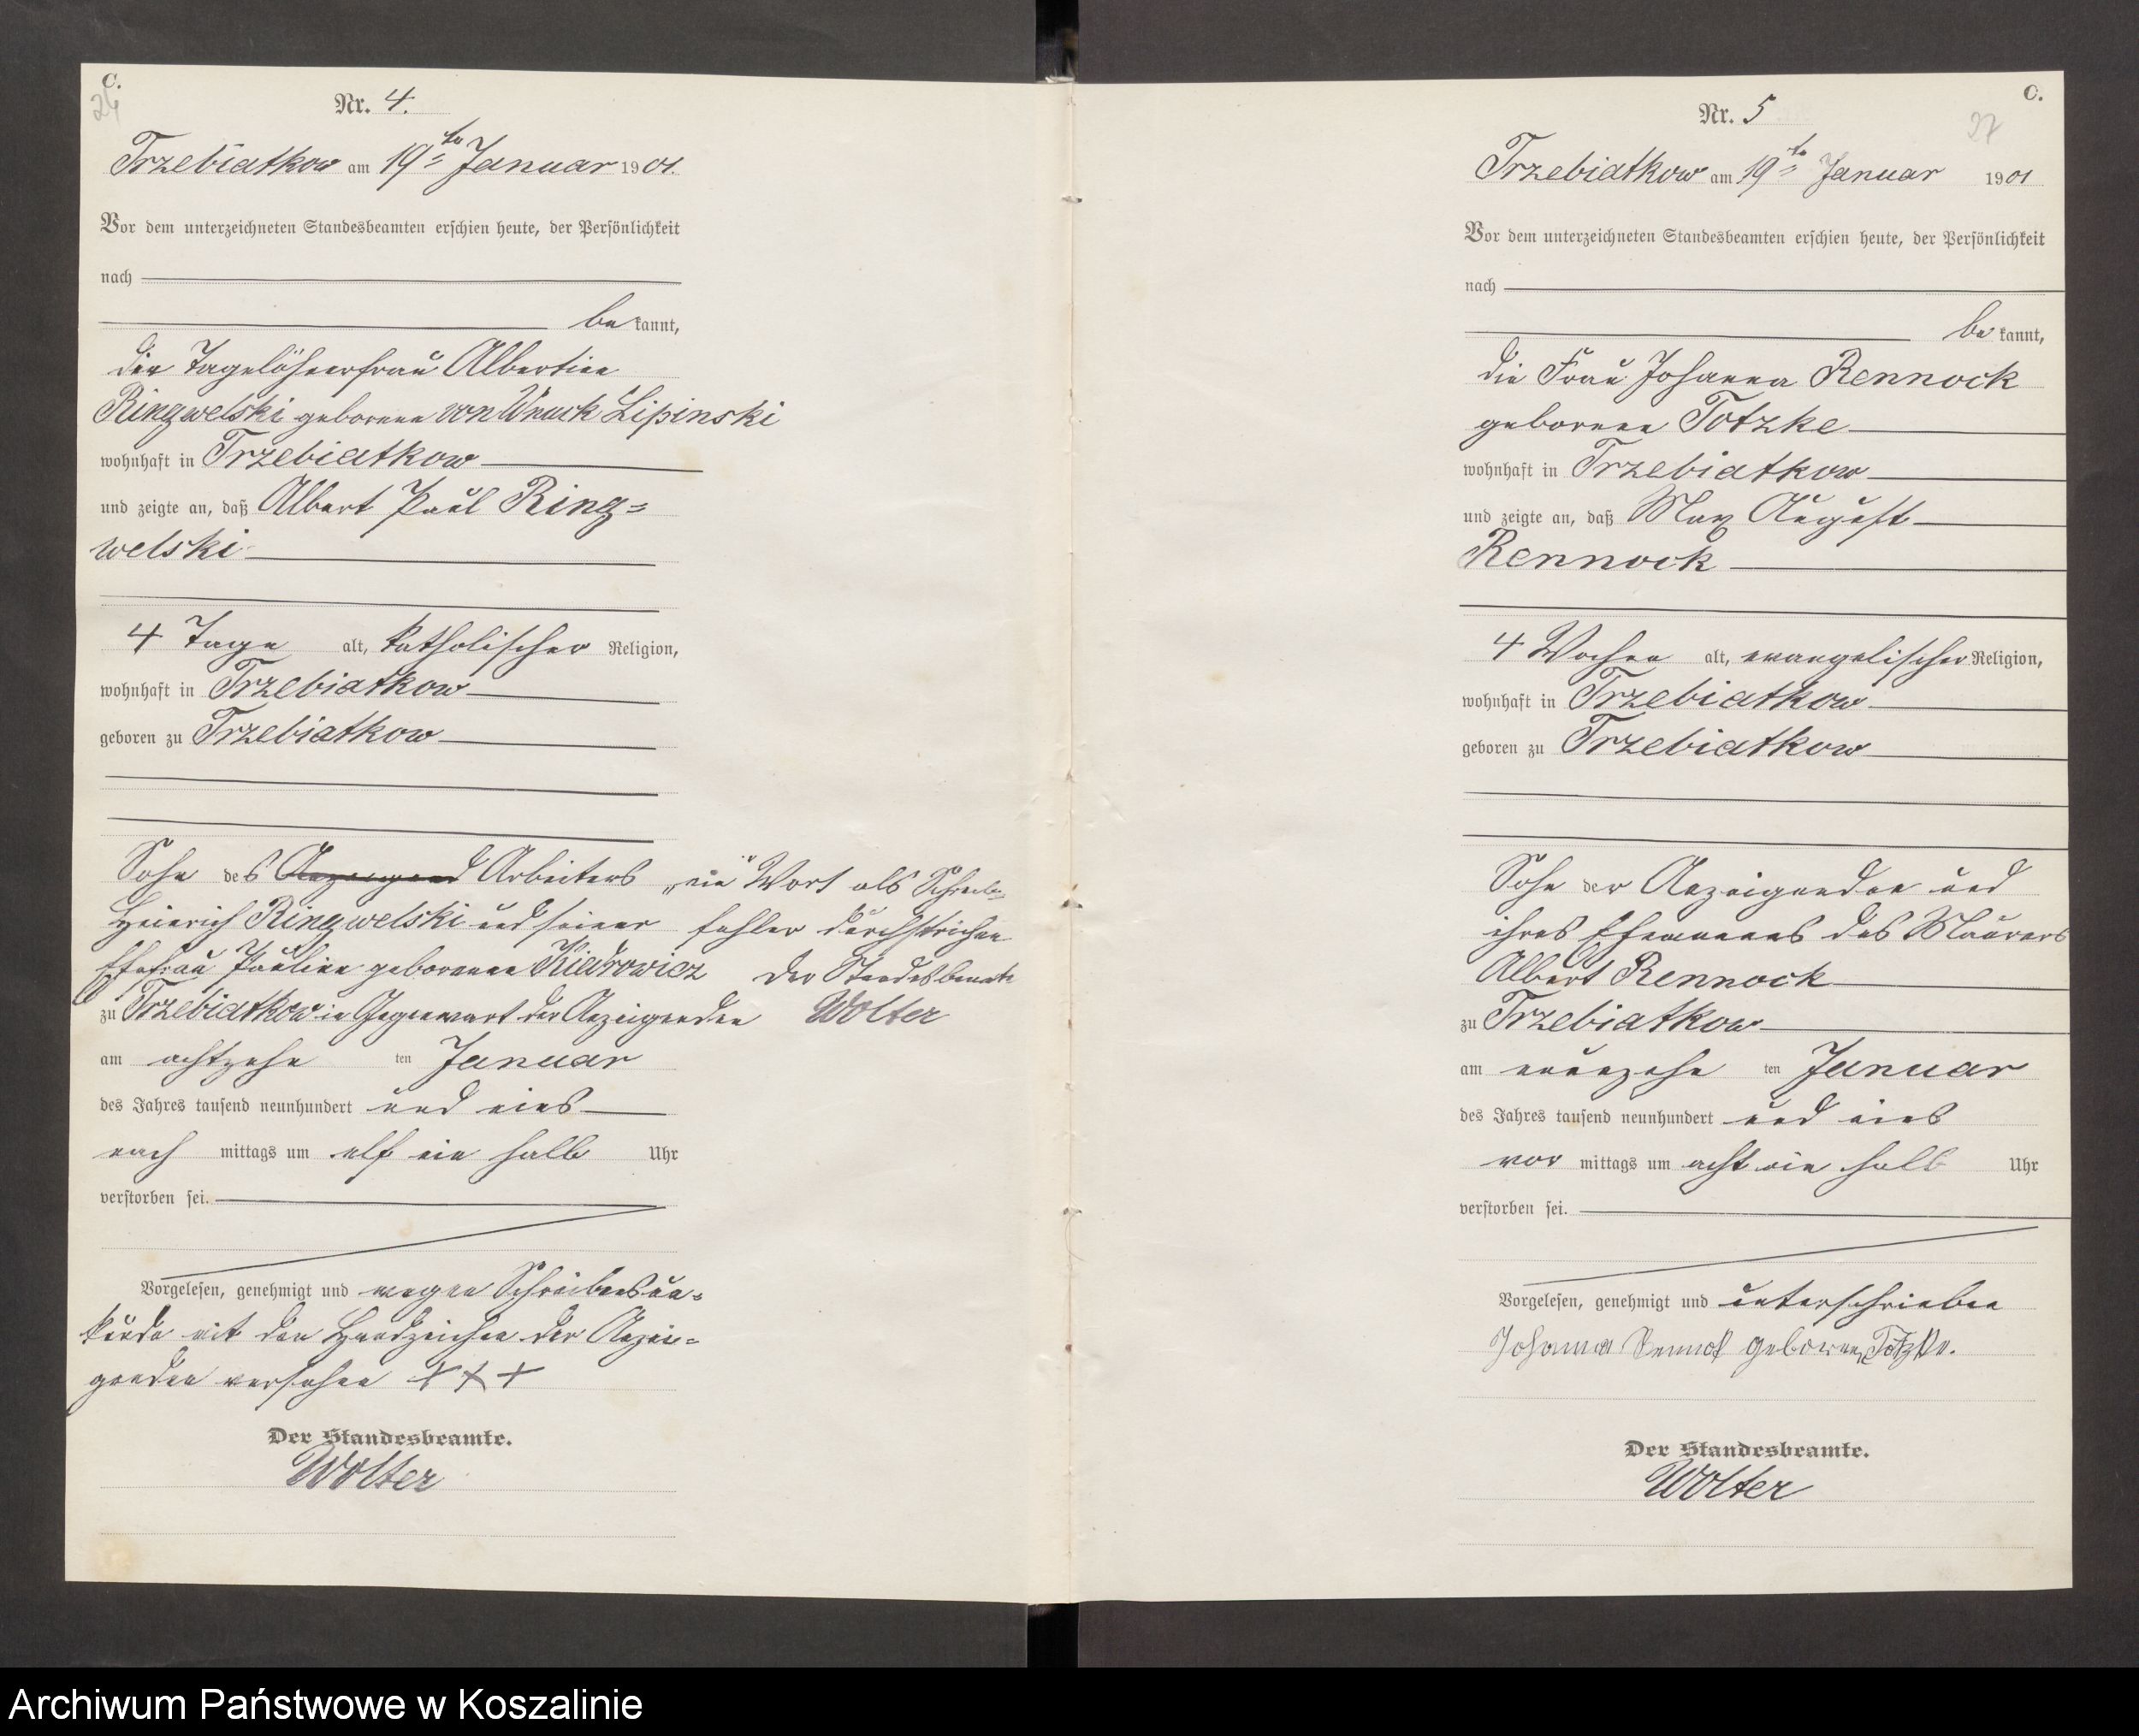 C.
24
Nr. 4.
Trzebiatkow am 19ten Januar 1901.
Vor dem unterzeichneten Standesbeamten erschien heute, der Persönlichkeit
nach
be kannt,
die Tagelöhnerfrau Albertine
Ringwelski geborene von Wnuck Lipinski
wohnhaft in Trzebiatkow
und zeigte an, daß Albert Paul Ring=
welski
4 Tage alt, katholischer Religion,
wohnhaft in Trzebiatkow
geboren zu Trzebiatkow
Sohn des Anzeigend Arbeiters
Heinrich Ringwelski und seiner
Ehefrau Pauline geborenen Kiedrowicz
zu Trzebiatkow in Gegenwart der Anzeigenden
am achtzehn ten Januar
des Jahres tausend neunhundert und eins
nach mittags um elf ein halb Uhr
verstorben sei.
Vorgelesen, genehmigt und wegen Schreibensun=
kunde mit den Handzeichen der Anzei=
genden versehen + + +
Der Standesbeamte.
Wolter
„ein" Wort als Schreib=
fehler durchstrichen
Der Standesbeamte
Wolter
C.
27
Nr. 5
Trzebiatkow am 19ten Januar 1901
Vor dem unterzeichneten Standesbeamten erschien heute, der Persönlichkeit
nach
be kannt,
die Frau Johanna Rennock
geborene Totzke
wohnhaft in Trzebiatkow
und zeigte an, daß Max August
Rennock
4 Wochen alt, evangelischer Religion,
wohnhaft in Trzebiatkow
geboren zu Trzebiatkow
Sohn der Anzeigenden und
ihres Ehemannes des Maurers
Albert Rennock
zu Trzebiatkow
am neunzehn ten Januar
des Jahres tausend neunhundert und eins
vor mittags um acht ein halb Uhr
verstorben sei.
Vorgelesen, genehmigt und unterschrieben
Johanna Rennock geborene Totzke.
Der Standesbeamte.
Wolter
Archiwum Państwowe w Koszalinie